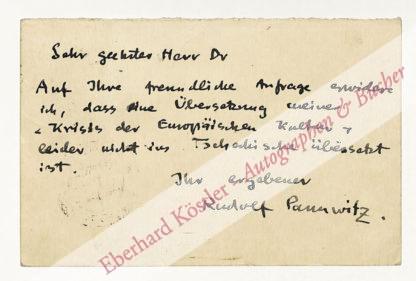 Sehr geehrter Herr Dr
Auf Ihre freundliche Anfrage erwidere
ich, dass eine Übersetzung meiner
"Krisis der Europäischen Kultur"
leider nicht ins Tschechische übersetzt
ist.
Ihr ergebener
Rudolf Pannwitz.
Eberhard Köstler - Autographen & Bücher